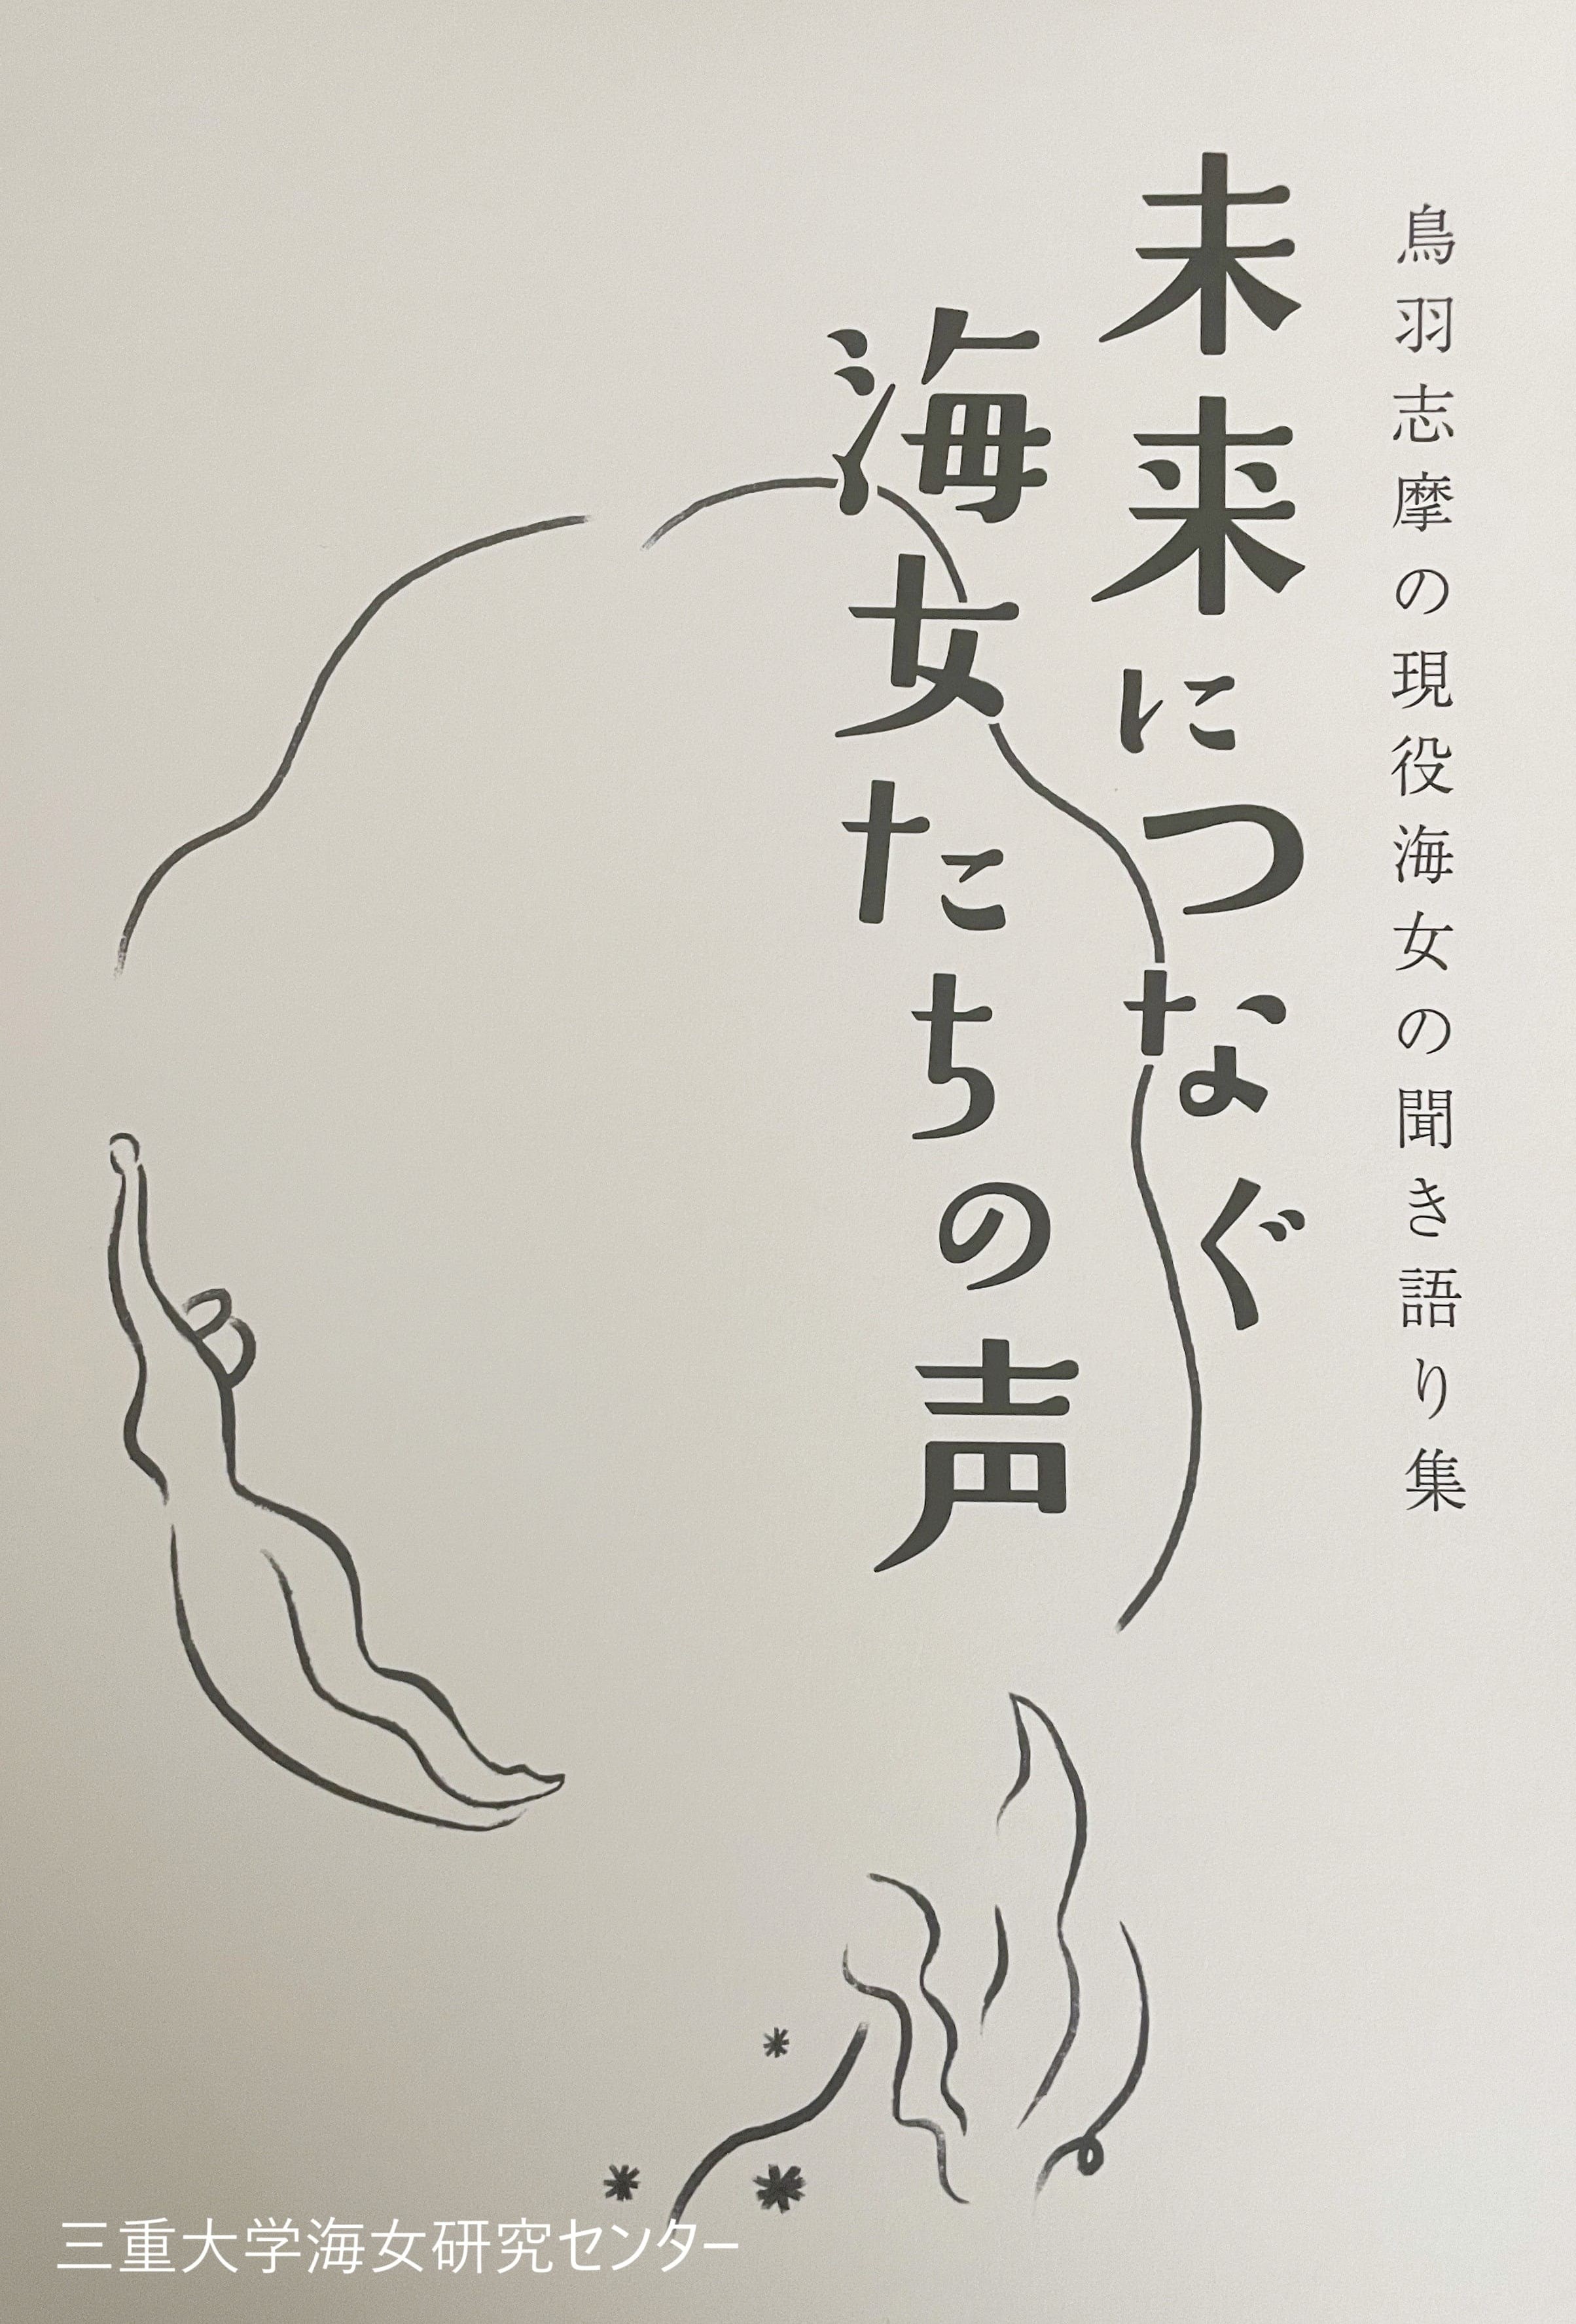 鳥羽志摩の現役海女の聞き語り集
未来につなぐ
海女たちの声
三重大学海女研究センター